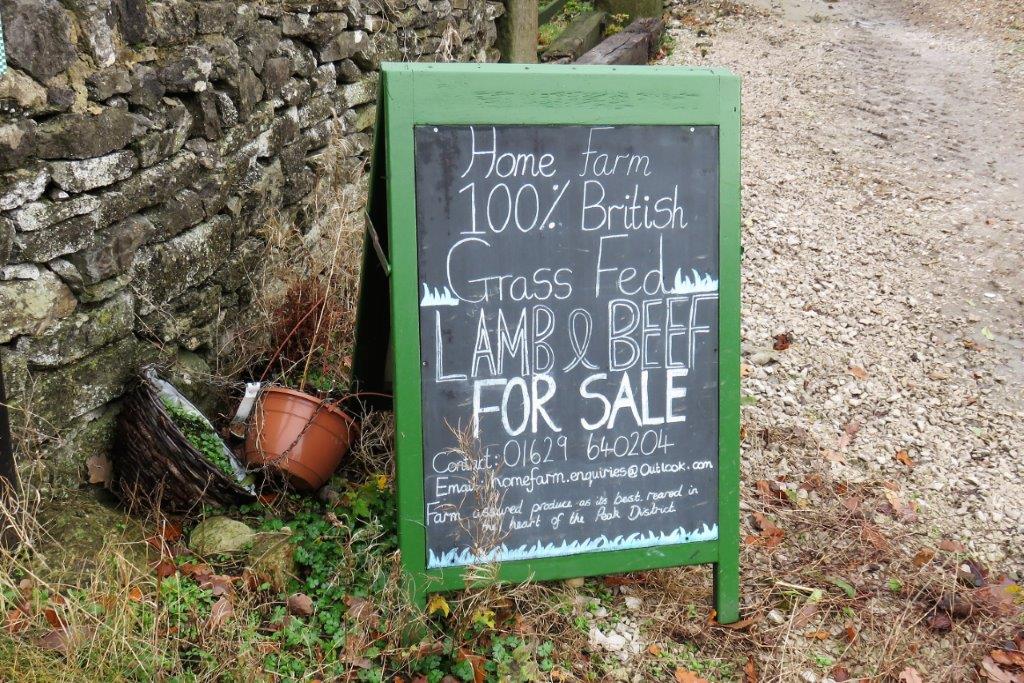 Home Farm
100% British
Grass Fed
LAMB & BEEF
FOR SALE
Contact: 01629 640204
Email: homefarm.enquiries@outlook.com
Farm assured produce as its best. reared in
the heart of the Peak District